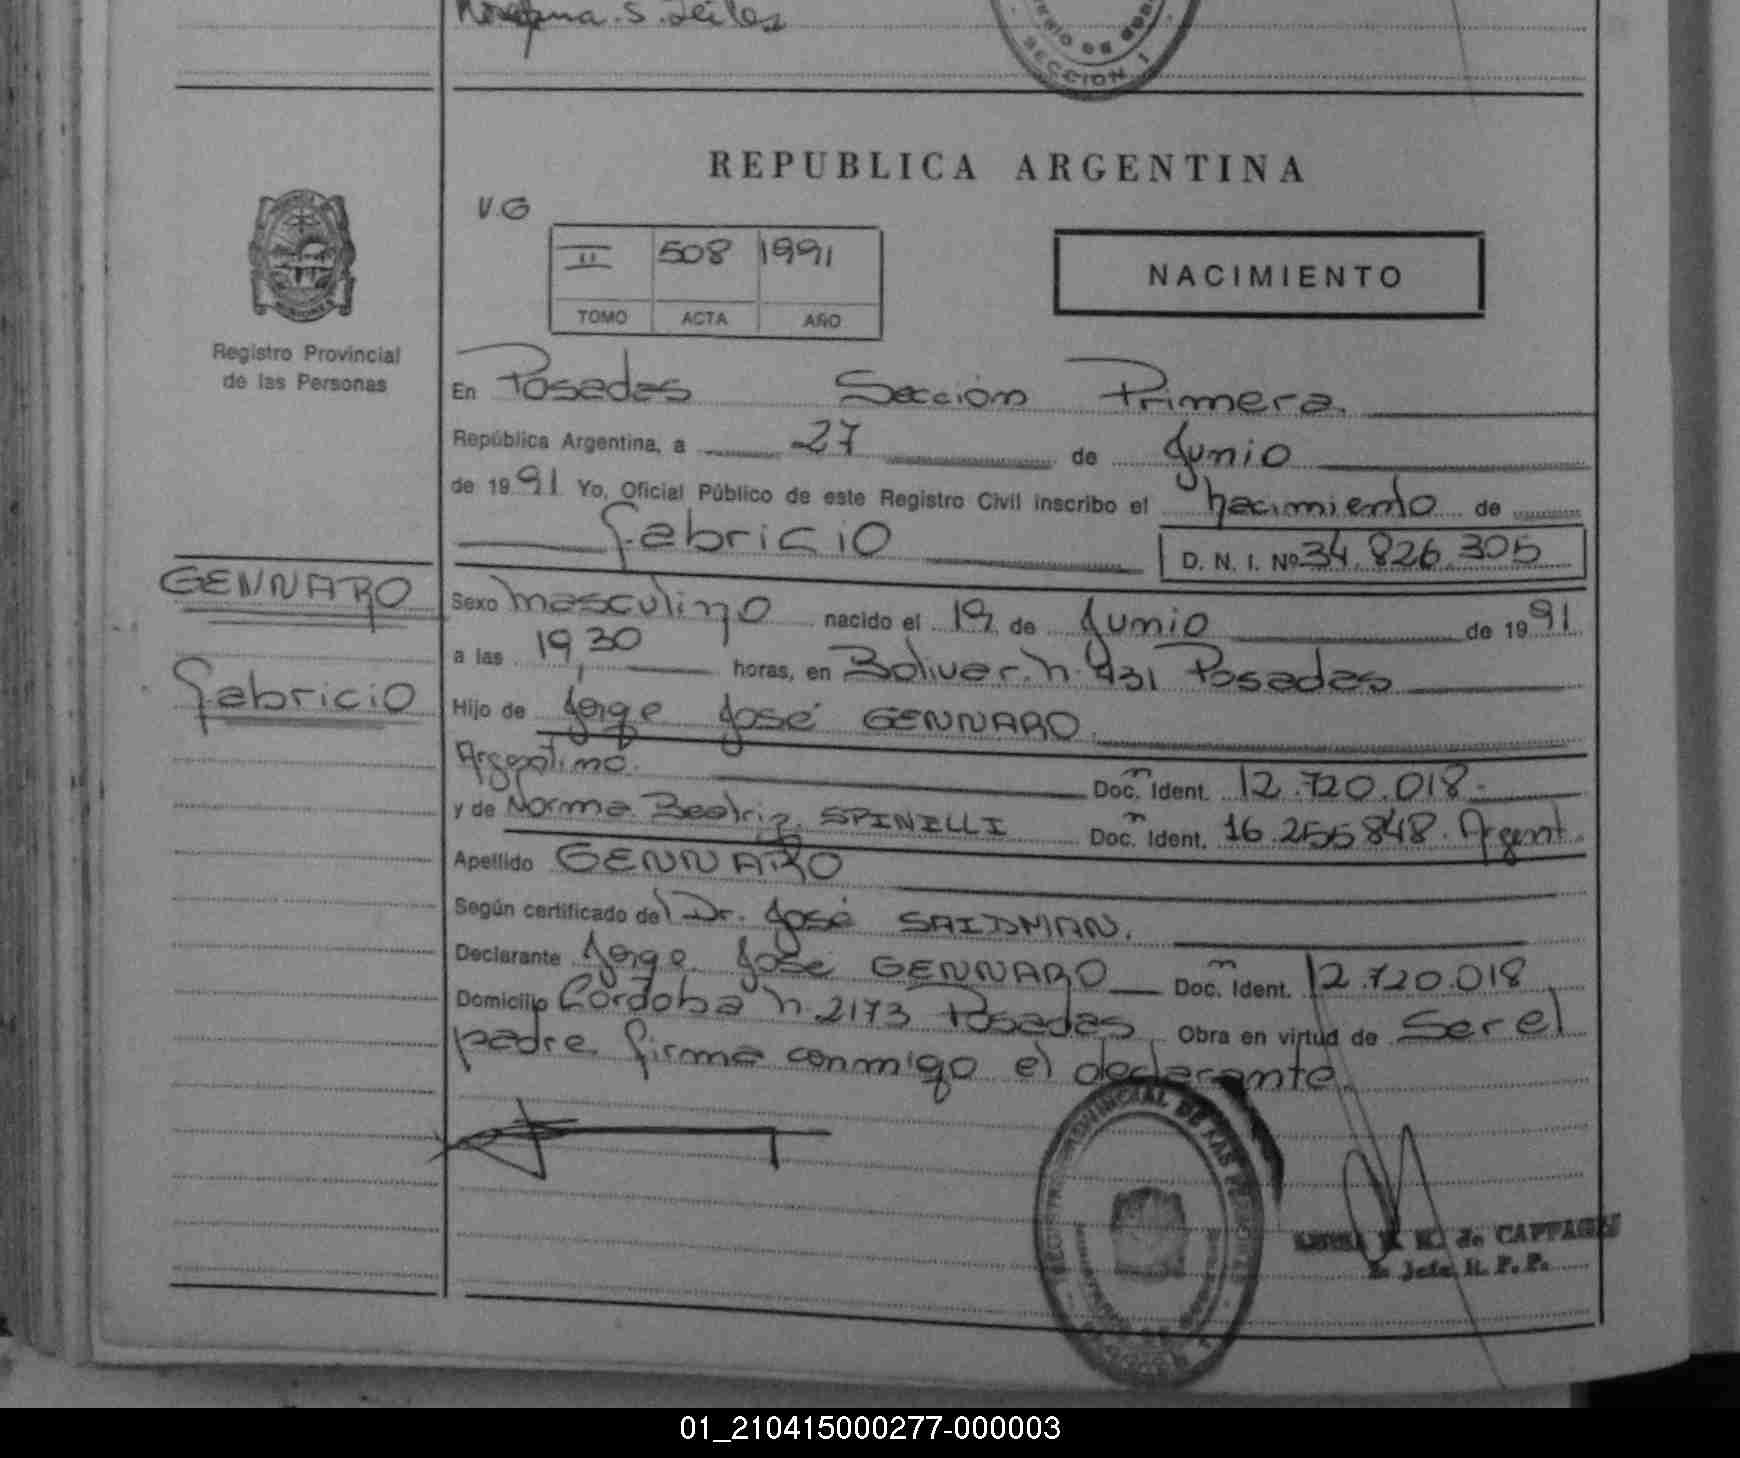 REPUBLICA ARGENTINA
V.G
II 508 1991
TOMO ACTA AÑO
NACIMIENTO
Registro Provincial
de las Personas
En Posadas Sección Primera
República Argentina, a 27 de Junio
de 1991 Yo, Oficial Público de este Registro Civil inscribo el nacimiento de
Fabricio D. N. I. Nº 34.826.305
GENNARO
Fabricio
Sexo masculino nacido el 19 de Junio de 1991
a las 19,30 horas, en Bolivar n. 431 Posadas
Hijo de Jorge José GENNARO
Argentino. Doc. Ident. 12.720.018.
y de Norma Beatriz SPINELLI Doc. Ident. 16.255.848. Argent.
Apellido GENNARO
Según certificado del Dr. José SAIDMAN.
Declarante Jorge José GENNARO Doc. Ident. 12.720.018
Domicilio Córdoba n. 2173 Posadas Obra en virtud de Ser el
padre firma conmigo el declarante.
PROVINCIAL DE LAS PERSONAS
de CAPPAGLI
Jefa R. P. P.
SECCION 1
01_210415000277-000003